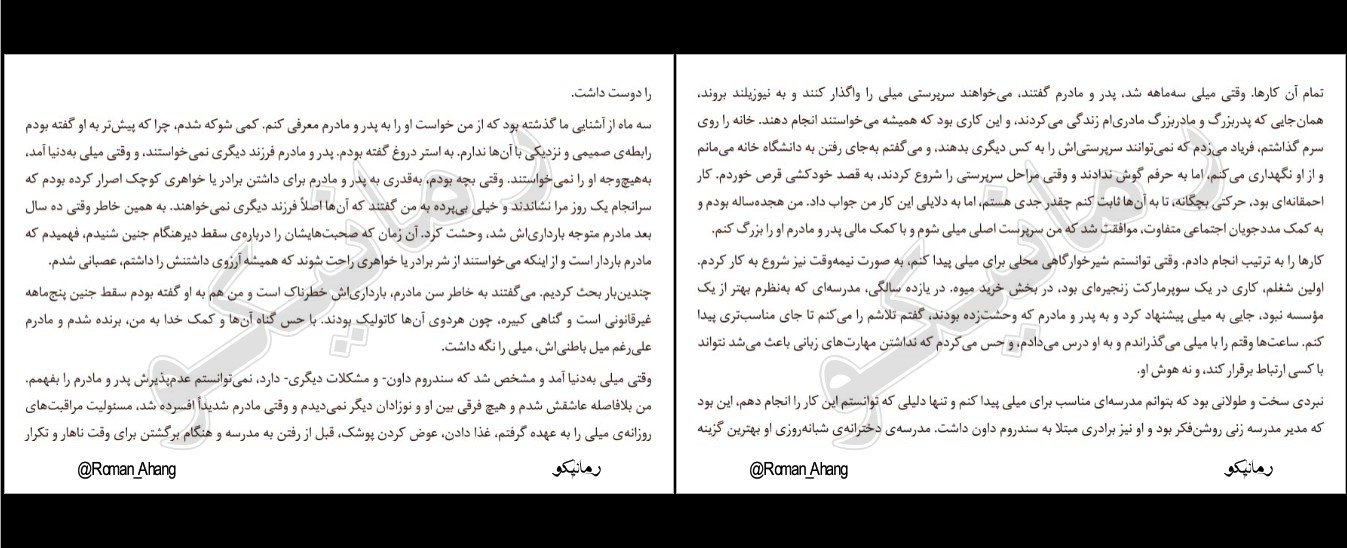 را دوست داشت.
سه ماه از آشنایی ما گذشته بود که از من خواست او را به پدر و مادرم معرفی کنم. کمی شوکه شدم، چرا که پیش‌تر به او گفته بودم
رابطه‌ی صمیمی و نزدیکی با آن‌ها ندارم. به استر دروغ گفته بودم. پدر و مادرم فرزند دیگری نمی‌خواستند، و وقتی میلی به‌دنیا آمد،
به‌هیچ‌وجه او را نمی‌خواستند. وقتی بچه بودم، به‌قدری به پدر و مادرم برای داشتن برادر یا خواهری کوچک اصرار کرده بودم که
سرانجام یک روز مرا نشاندند و خیلی بی‌پرده به من گفتند که آن‌ها اصلاً فرزند دیگری نمی‌خواهند. به همین خاطر وقتی ده سال
بعد مادرم متوجه بارداری‌اش شد، وحشت کرد. آن زمان که صحبت‌هایشان را درباره‌ی سقط دیرهنگام جنین شنیدم، فهمیدم که
مادرم باردار است و از اینکه می‌خواستند از شر برادر یا خواهری راحت شوند که همیشه آرزوی داشتنش را داشتم، عصبانی شدم.
چندین‌بار بحث کردیم. می‌گفتند به خاطر سن مادرم، بارداری‌اش خطرناک است و من هم به او گفته بودم سقط جنین پنج‌ماهه
غیرقانونی است و گناهی کبیره، چون هردوی آن‌ها کاتولیک بودند. با حس گناه آن‌ها و کمک خدا به من، برنده شدم و مادرم
علی‌رغم میل باطنی‌اش، میلی را نگه داشت.
وقتی میلی به‌دنیا آمد و مشخص شد که سندروم داون- و مشکلات دیگری- دارد، نمی‌توانستم عدم‌پذیرش پدر و مادرم را بفهمم.
من بلافاصله عاشقش شدم و هیچ فرقی بین او و نوزادان دیگر نمی‌دیدم و وقتی مادرم شدیداً افسرده شد، مسئولیت مراقبت‌های
روزانه‌ی میلی را به عهده گرفتم، غذا دادن، عوض کردن پوشک، قبل از رفتن به مدرسه و هنگام برگشتن برای وقت ناهار و تکرار
@Roman_Ahang رمانیکو
تمام آن کارها. وقتی میلی سه‌ماهه شد، پدر و مادرم گفتند، می‌خواهند سرپرستی میلی را واگذار کنند و به نیوزیلند بروند،
همان‌جایی که پدربزرگ و مادربزرگ مادری‌ام زندگی می‌کردند، و این کاری بود که همیشه می‌خواستند انجام دهند. خانه را روی
سرم گذاشتم، فریاد می‌زدم که نمی‌توانند سرپرستی‌اش را به کس دیگری بدهند، و می‌گفتم به‌جای رفتن به دانشگاه خانه می‌مانم
و از او نگهداری می‌کنم، اما به حرفم گوش ندادند و وقتی مراحل سرپرستی را شروع کردند، به قصد خودکشی قرص خوردم. کار
احمقانه‌ای بود، حرکتی بچگانه، تا به آن‌ها ثابت کنم چقدر جدی هستم، اما به دلایلی این کار من جواب داد. من هجده‌ساله بودم و
به کمک مددجویان اجتماعی متفاوت، موافقت شد که من سرپرست اصلی میلی شوم و با کمک مالی پدر و مادرم او را بزرگ کنم.
کارها را به ترتیب انجام دادم. وقتی توانستم شیرخوارگاهی محلی برای میلی پیدا کنم، به صورت نیمه‌وقت نیز شروع به کار کردم.
اولین شغلم، کاری در یک سوپرمارکت زنجیره‌ای بود، در بخش خرید میوه. در یازده سالگی، مدرسه‌ای که به‌نظرم بهتر از یک
مؤسسه نبود، جایی به میلی پیشنهاد کرد و به پدر و مادرم که وحشت‌زده بودند، گفتم تلاشم را می‌کنم تا جای مناسب‌تری پیدا
کنم. ساعت‌ها وقتم را با میلی می‌گذراندم و به او درس می‌دادم، و حس می‌کردم که نداشتن مهارت‌های زبانی باعث می‌شد نتواند
با کسی ارتباط برقرار کند، و نه هوش او.
نبردی سخت و طولانی بود که بتوانم مدرسه‌ای مناسب برای میلی پیدا کنم و تنها دلیلی که توانستم این کار را انجام دهم، این بود
که مدیر مدرسه زنی روشن‌فکر بود و او نیز برادری مبتلا به سندروم داون داشت. مدرسه‌ی دخترانه‌ی شبانه‌روزی او بهترین گزینه
@Roman_Ahang رمانیکو